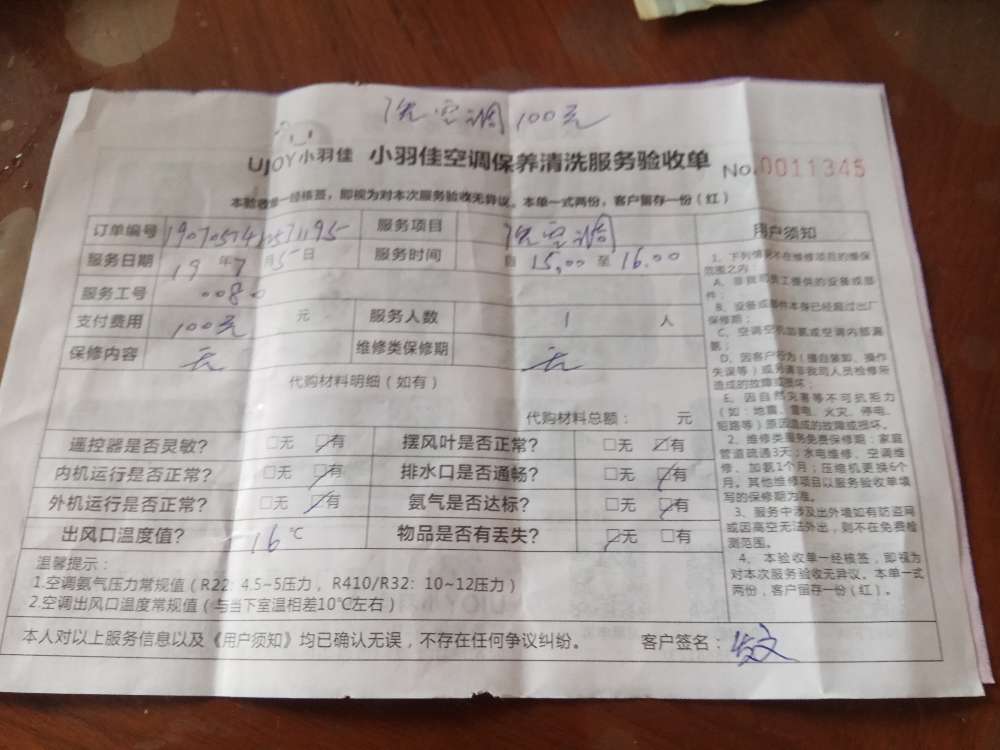 洗空调100元
UJOY小羽佳 小羽佳空调保养清洗服务验收单 No.0011345
本验收单一经核签，即视为对本次服务验收无异议。本单一式两份，客户留存一份（红）
订单编号 服务项目 洗空调
服务日期 19年7月5日 服务时间 自15.00至16.00
服务工号 0080
支付费用 100元 元 服务人数 1 人
保修内容 无 维修类保修期 无
代购材料明细（如有）
代购材料总额： 元
遥控器是否灵敏？ □无 □有 摆风叶是否正常？ □无 □有
内机运行是否正常？ □无 □有 排水口是否通畅？ □无 □有
外机运行是否正常？ □无 □有 氨气是否达标？ □无 □有
出风口温度值？ 16 ℃ 物品是否有丢失？ □无 □有
温馨提示：
1.空调氨气压力常规值（R22: 4.5~5压力，R410/R32：10~12压力）
2.空调出风口温度常规值（与当下室温相差10℃左右）
本人对以上服务信息以及《用户须知》均已确认无误，不存在任何争议纠纷。 客户签名：
用户须知
1、下列情况不在维修项目的维保
范围之内：
A、非我司员工提供的设备或部
件；
B、设备或部件本身已经超过出厂
保修期；
C、空调空机加氨或空调内部漏
氨；
D、因客户行为（擅自装卸、操作
失误等）或另请非我司人员检修所
造成的故障或损坏；
E、因自然灾害等不可抗拒力
（如：地震、雷电、火灾、停电、
短路等）原因造成的故障或损坏。
2、维修类服务免费保修期：家庭
管道疏通3天；水电维修、空调维
修、加氨1个月；压缩机更换6个
月。其他维修项目以服务验收单填
写的保修期为准。
3、服务中涉及出外墙如有防盗网
或因高空无法外出，则不在免费检
测范围。
4、本验收单一经核签，即视为
对本次服务验收无异议。本单一式
两份，客户留存一份（红）。